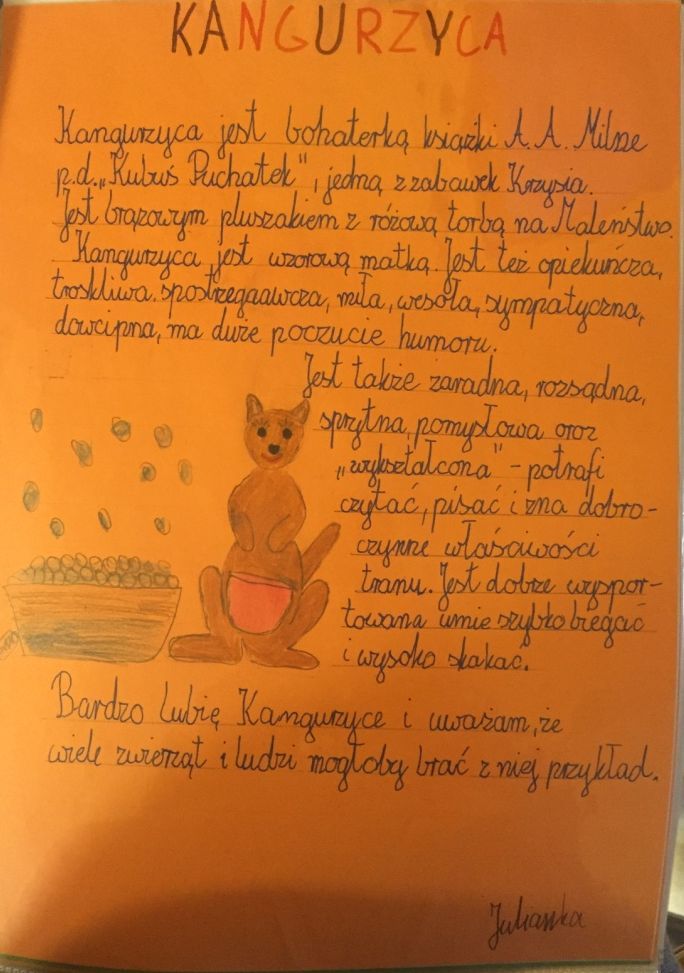 KANGURZYCA
Kangurzyca jest bohaterką książki A. A. Milne
p.d. „Kubuś Puchatek", jedną z zabawek Krzysia.
Jest brązowym pluszakiem z różową torbą na Maleństwo.
Kangurzyca jest wzorową matką. Jest też opiekuńcza,
troskliwa, spostrzegaawcza, miła, wesoła, sympatyczna,
dowcipna, ma duże poczucie humoru.
Jest także zaradna, rozsądna,
sprytna, pomysłowa oraz
„wykształcona" - potrafi
czytać, pisać i zna dobro-
czynne właściwości
tranu. Jest dobrze wyspor-
towana umie szybko biegać
i wysoko skakać.
Bardzo lubię Kangurzyce i uważam, że
wiele zwierząt i ludzi mogłoby brać z niej przykład.
Julianka